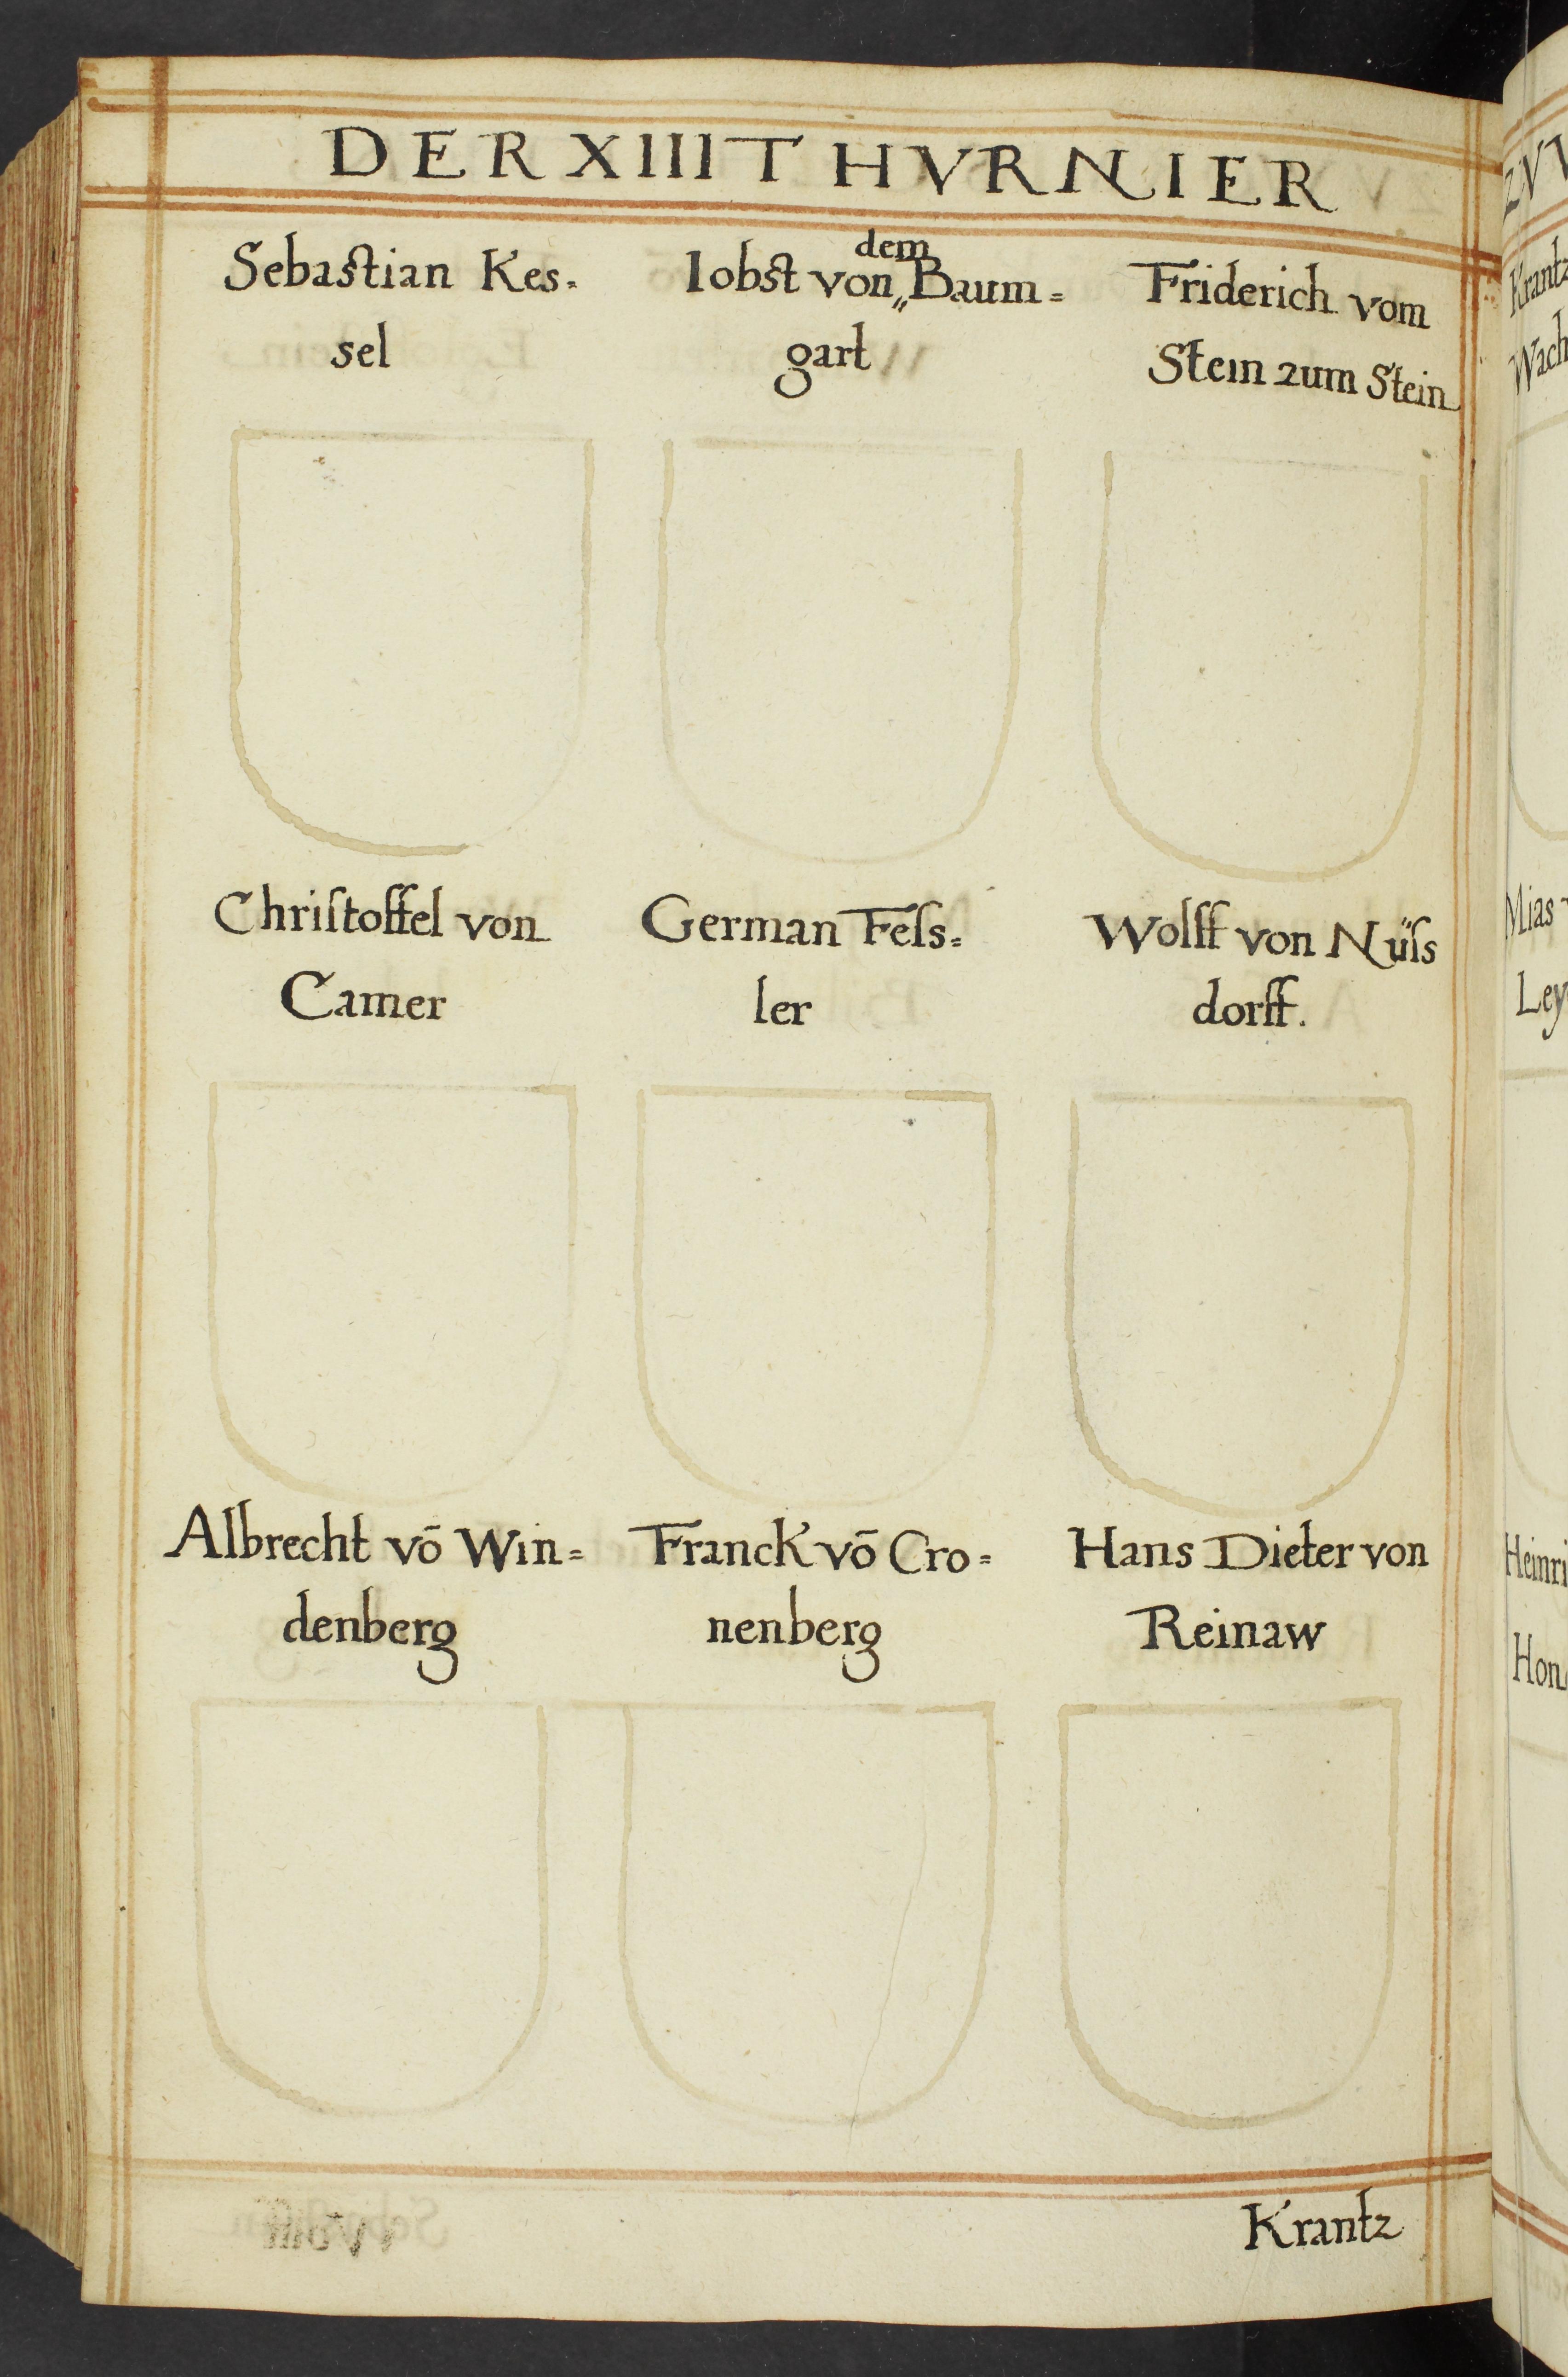 DER XIIII THVRNIER
Sebastian Kes=
sel
Iobst von dem Baum=
gart
Friderich vom
Stein zum Stein
Chriſtoffel von
Camer
German Feſs=
ler
Wolff von Nüſs
dorff.
Albrecht vō Win=
denberg
Franck vō Cro=
nenberg
Hans Dieter von
Reinaw
Krantz
Krantz
Wach
Mias
Ley
Heinri
Hon